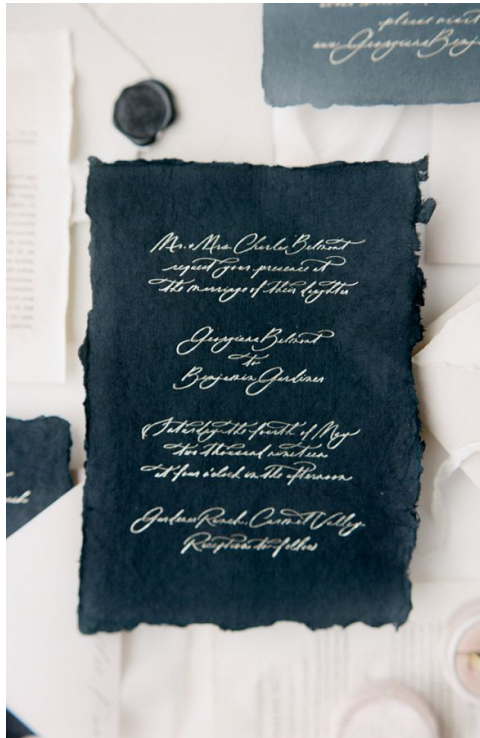 please visit
Mr. & Mrs. Charles Belmont
request your presence at
the marriage of their daughter
Georgiana Belmont
to
Benjamin Gardiner
Saturday the fourth of May
two thousand nineteen
at four o'clock in the afternoon
Gardener Ranch, Carmel Valley
Reception to follow